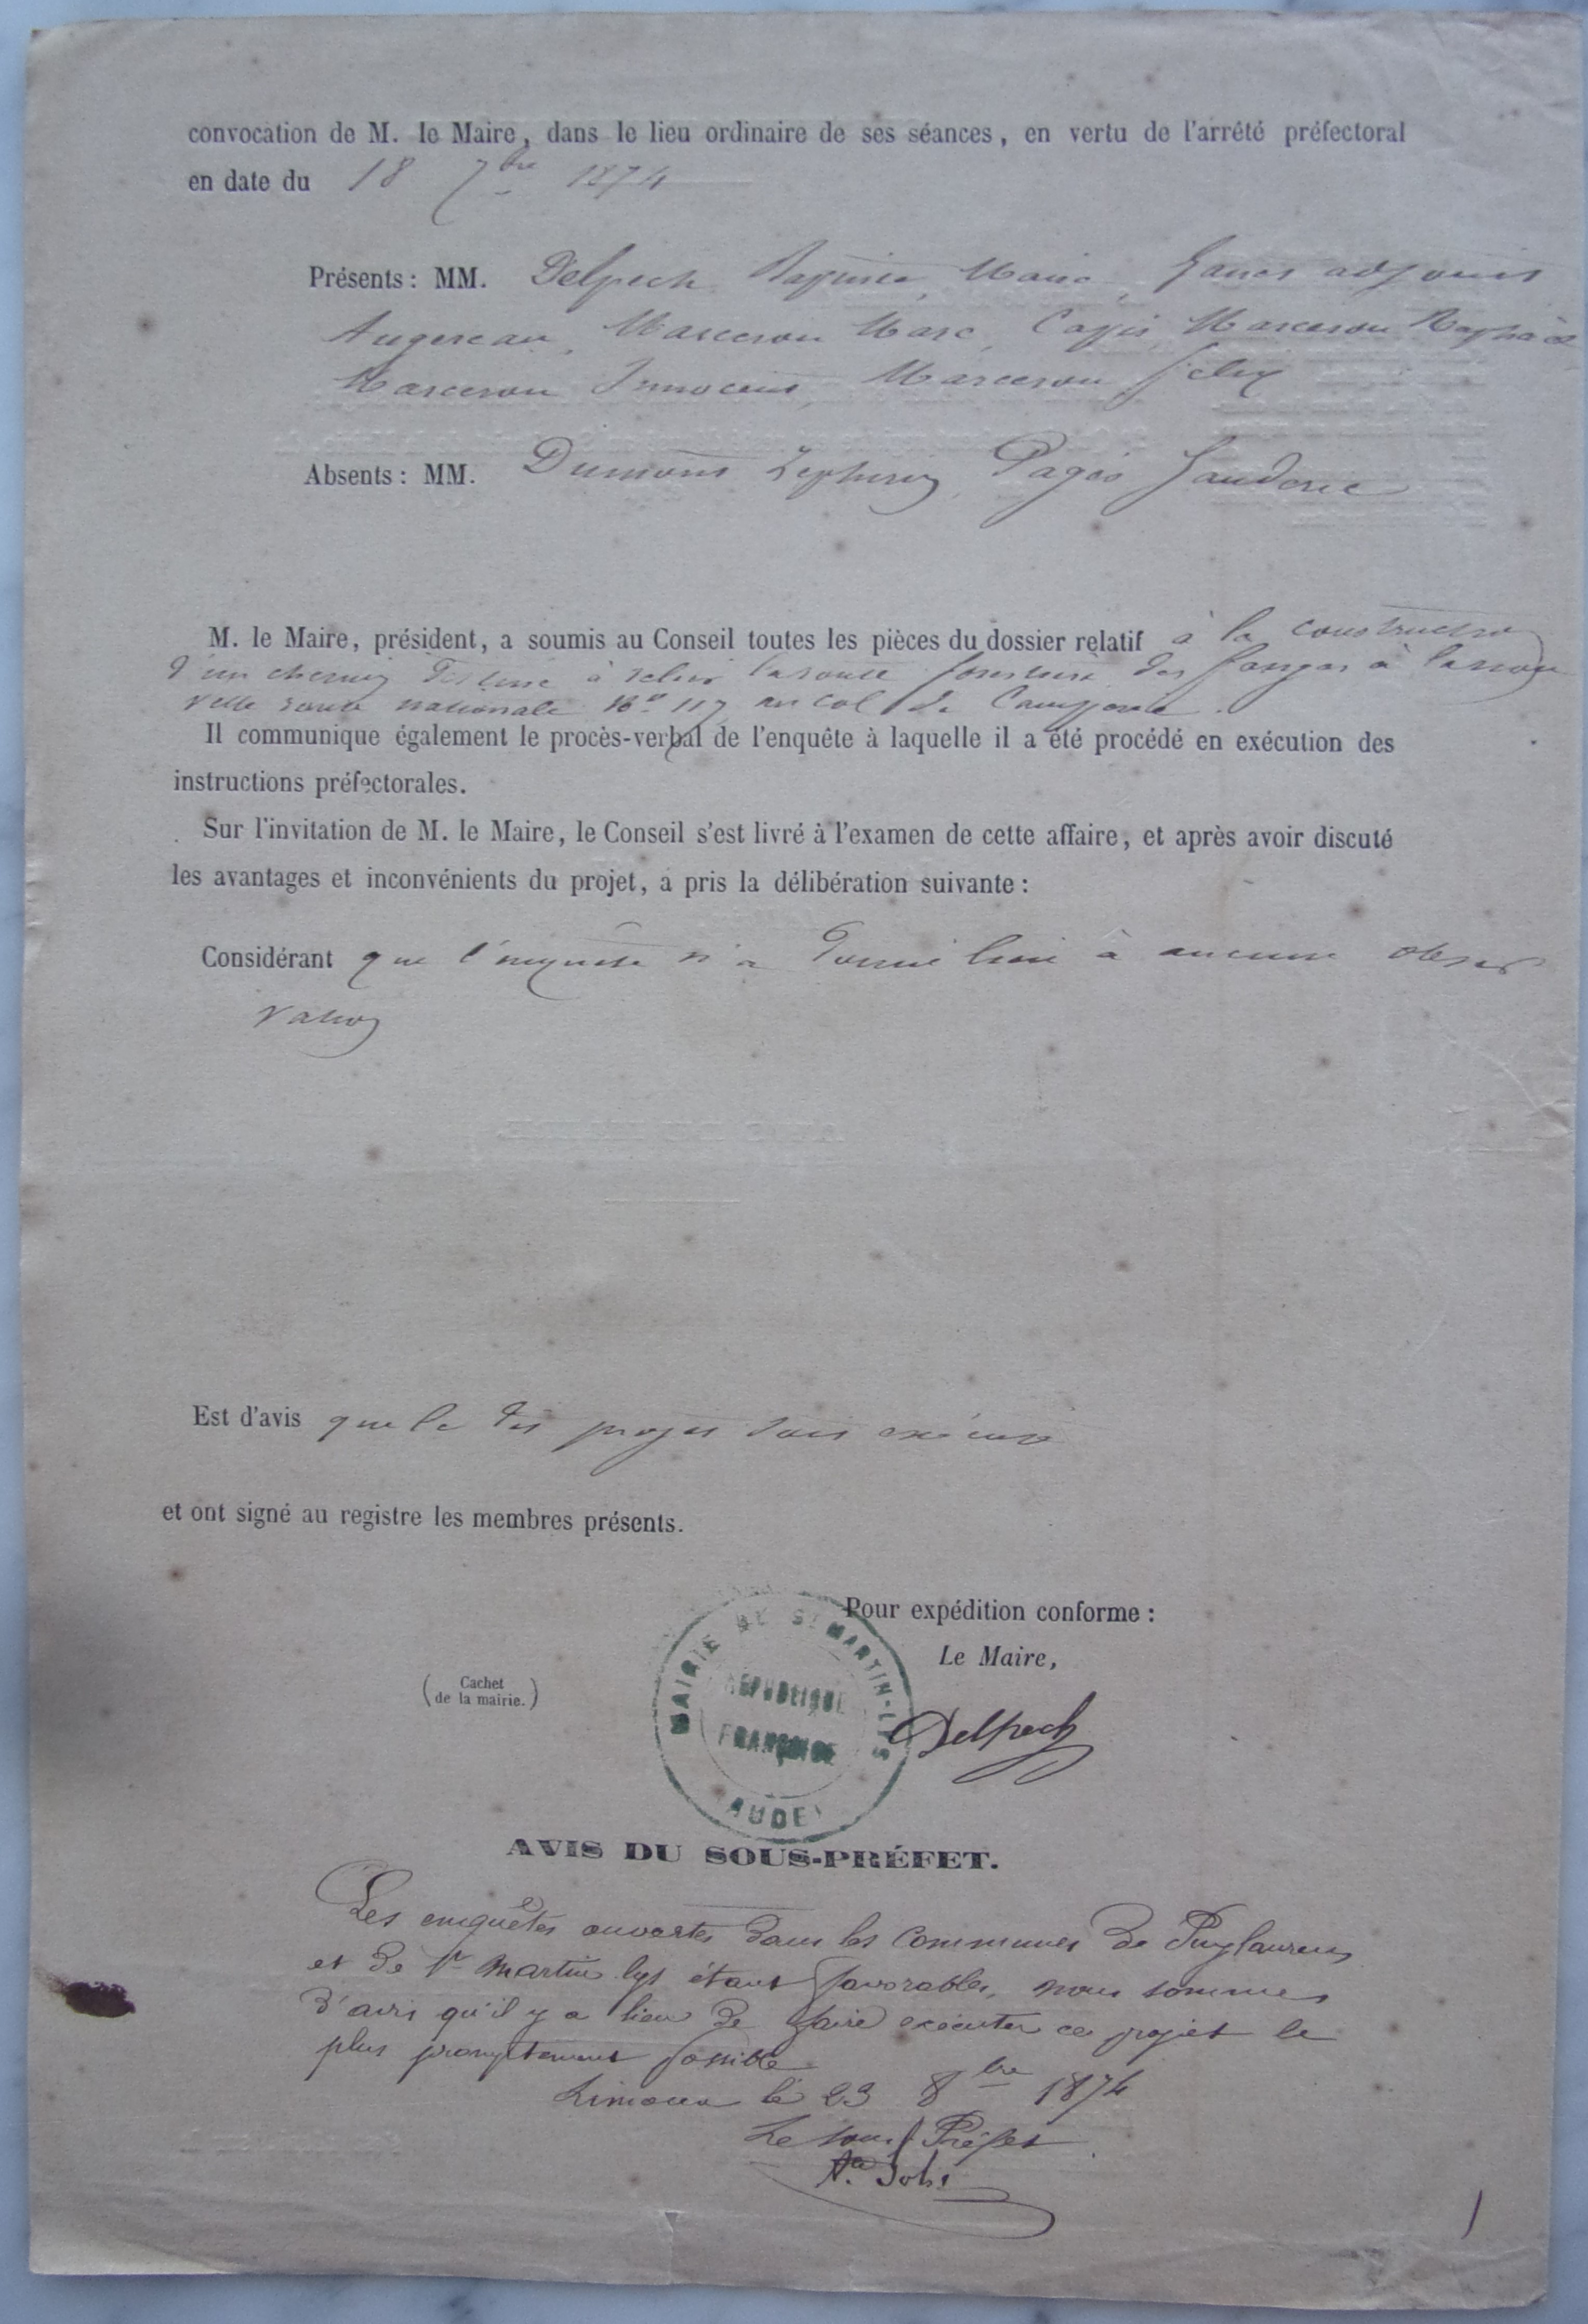 convocation de M. le Maire, dans le lieu ordinaire de ses séances, en vertu de l'arrêté préfectoral
en date du 18 7bre 1874
Présents : MM. Delpech Maire,
Augereau, Marceron Marc, Marceron Raphaël
Marceron Innocent, Marceron felix
Absents : MM. Dumons Zephirin, Pagès Gauderic
M. le Maire, président, a soumis au Conseil toutes les pièces du dossier relatif à la construction
d'un chemin destiné à relier la route forestière des fanges à la nou
velle route nationale No 117 au col de Campérié.
Il communique également le procès-verbal de l'enquête à laquelle il a été procédé en exécution des
instructions préfectorales.
Sur l'invitation de M. le Maire, le Conseil s'est livré à l'examen de cette affaire, et après avoir discuté
les avantages et inconvénients du projet, a pris la délibération suivante :
Considérant que l'enquête n'a donné lieu à aucune obser
vation
Est d'avis que le dit projet soit exécuté
et ont signé au registre les membres présents.
Pour expédition conforme :
Le Maire,
(Cachet
de la mairie.)
MAIRIE DE ST MARTIN-LYS
RÉPUBLIQUE
FRANÇAISE
(AUDE)
Delpech
AVIS DU SOUS-PRÉFET.
Les enquêtes ouvertes dans les communes de Puylaurens
et de St Martin lys étant favorables, nous sommes
d'avis qu'il y a lieu de faire exécuter ce projet le
plus promptement possible
Limoux le 23 8bre 1874
Le sous Préfet